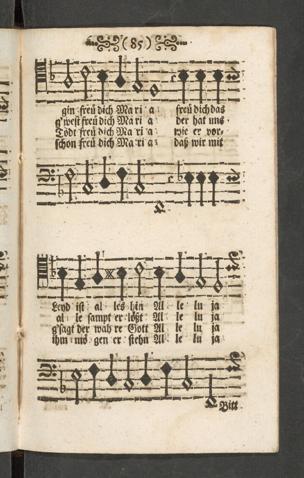 (85)
gin freü dich Ma ri a freü dich das
g'west freü dich Ma ri a der hat uns
Tödt freü dich Ma ri a wie er vor-
schon freü dich Ma ri a daß wir mit
Leyd ist al les hin Al le lu ja
al le sampt er lößt Al le lu ja
g'sagt der wah re Gott Al le lu ja
ihm mö gen er stehn Al le lu ja
Bitt